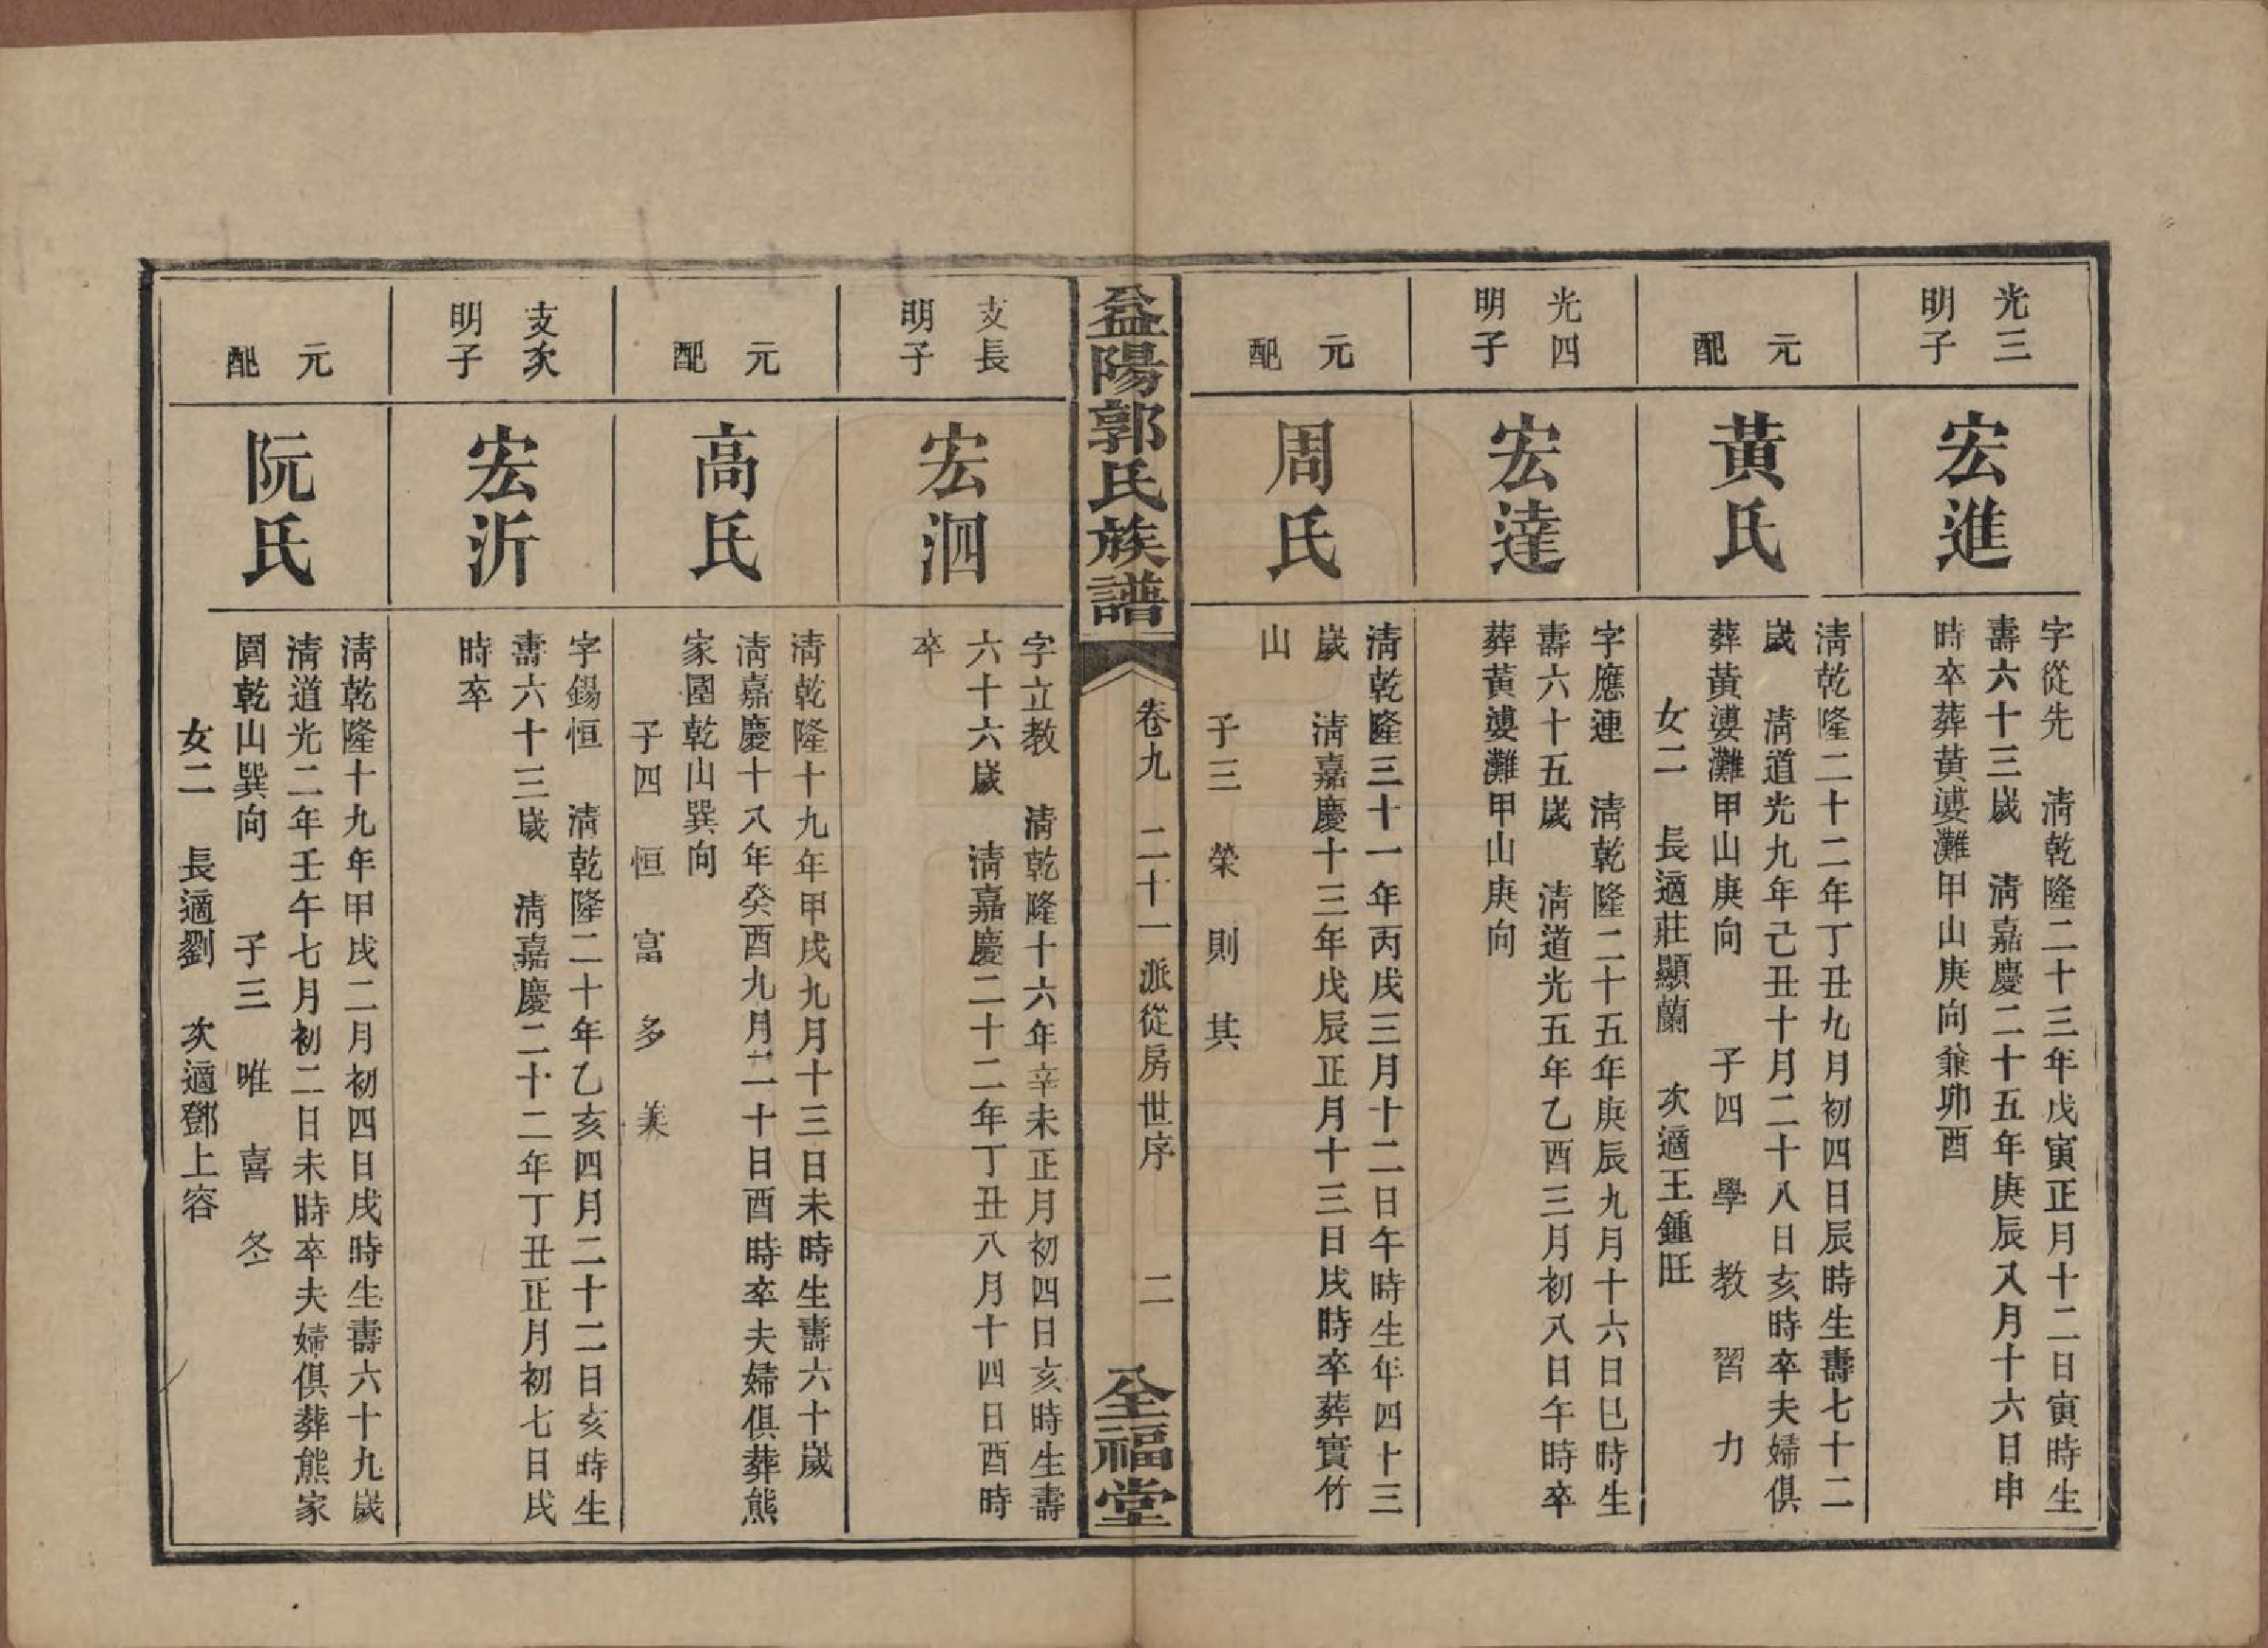 光三
明子
宏進
字從先　清乾隆二十三年戊寅正月十二日寅時生
壽六十三歲　清嘉慶二十五年庚辰八月十六日申
時卒葬黃婆灘甲山庚向兼卯酉
元配
黄氏
清乾隆二十二年丁丑九月初四日辰時生壽七十二
歲　清道光九年己丑十月二十八日亥時卒夫婦俱
葬黃婆灘甲山庚向　子四　學　教　習　力
女二　長適莊顯蘭　次適王鍾旺
光四
明子
宏達
字應連　清乾隆二十五年庚辰九月十六日巳時生
壽六十五歲　清道光五年乙酉三月初八日午時卒
葬黃婆灘甲山庚向
元配
周氏
清乾隆三十一年丙戌三月十二日午時生年四十三
歲　清嘉慶十三年戊辰正月十三日戌時卒葬實竹
山
子三　榮　則　其
益陽郭氏族譜
卷九　二十一派從房世序　二
全福堂
支長
明子
宏泗
字立教　清乾隆十六年辛未正月初四日亥時生壽
六十六歲　清嘉慶二十二年丁丑八月十四日酉時
卒
元配
高氏
清乾隆十九年甲戌九月十三日未時生壽六十歲
清嘉慶十八年癸酉九月二十日酉時卒夫婦俱葬熊
家園乾山巽向
子四　恒　富　多　美
支次
明子
宏沂
字錫恒　清乾隆二十年乙亥四月二十二日亥時生
壽六十三歲　清嘉慶二十二年丁丑正月初七日戌
時卒
元配
阮氏
清乾隆十九年甲戌二月初四日戌時生壽六十九歲
清道光二年壬午七月初二日未時卒夫婦俱葬熊家
園乾山巽向　子三　唯　喜　冬
女二　長適劉　次適鄧上容